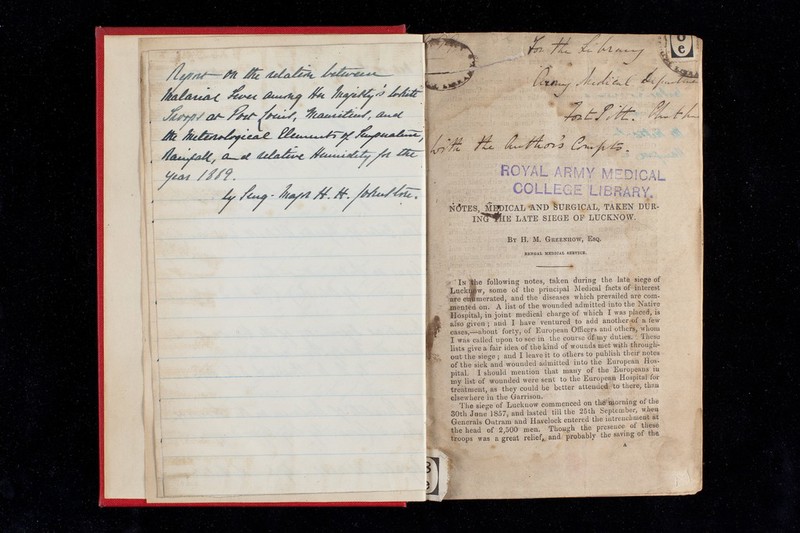 Report on the relation between
Malarial Fever among Her Majesty's White
Troops at Port Louis, Mauritius, and
the Meteorological Elements of Temperature,
Rainfall, and relative Humidity for the
year 1869.
by Surg. Major H. H. Johnstone.
For the Library
Army Medical Department
Fort Pitt. Chatham
With the Author's Compts.
ROYAL ARMY MEDICAL
COLLEGE LIBRARY.
NOTES, MEDICAL AND SURGICAL, TAKEN DUR-
ING THE LATE SIEGE OF LUCKNOW.
By H. M. Greenhow, Esq.
BENGAL MEDICAL SERVICE.
In the following notes, taken during the late siege of
Lucknow, some of the principal Medical facts of interest
are enumerated, and the diseases which prevailed are com-
mented on. A list of the wounded admitted into the Native
Hospital, in joint medical charge of which I was placed, is
also given; and I have ventured to add another of a few
cases,—about forty, of European Officers and others, whom
I was called upon to see in the course of my duties. These
lists give a fair idea of the kind of wounds met with through-
out the siege; and I leave it to others to publish their notes
of the sick and wounded admitted into the European Hos-
pital. I should mention that many of the Europeans in
my list of wounded were sent to the European Hospital for
treatment, as they could be better attended to there, than
elsewhere in the Garrison.
The siege of Lucknow commenced on the morning of the
30th June 1857, and lasted till the 25th September, when
Generals Outram and Havelock entered the intrenchment at
the head of 2,500 men. Though the presence of these
troops was a great relief, and probably the saving of the
A